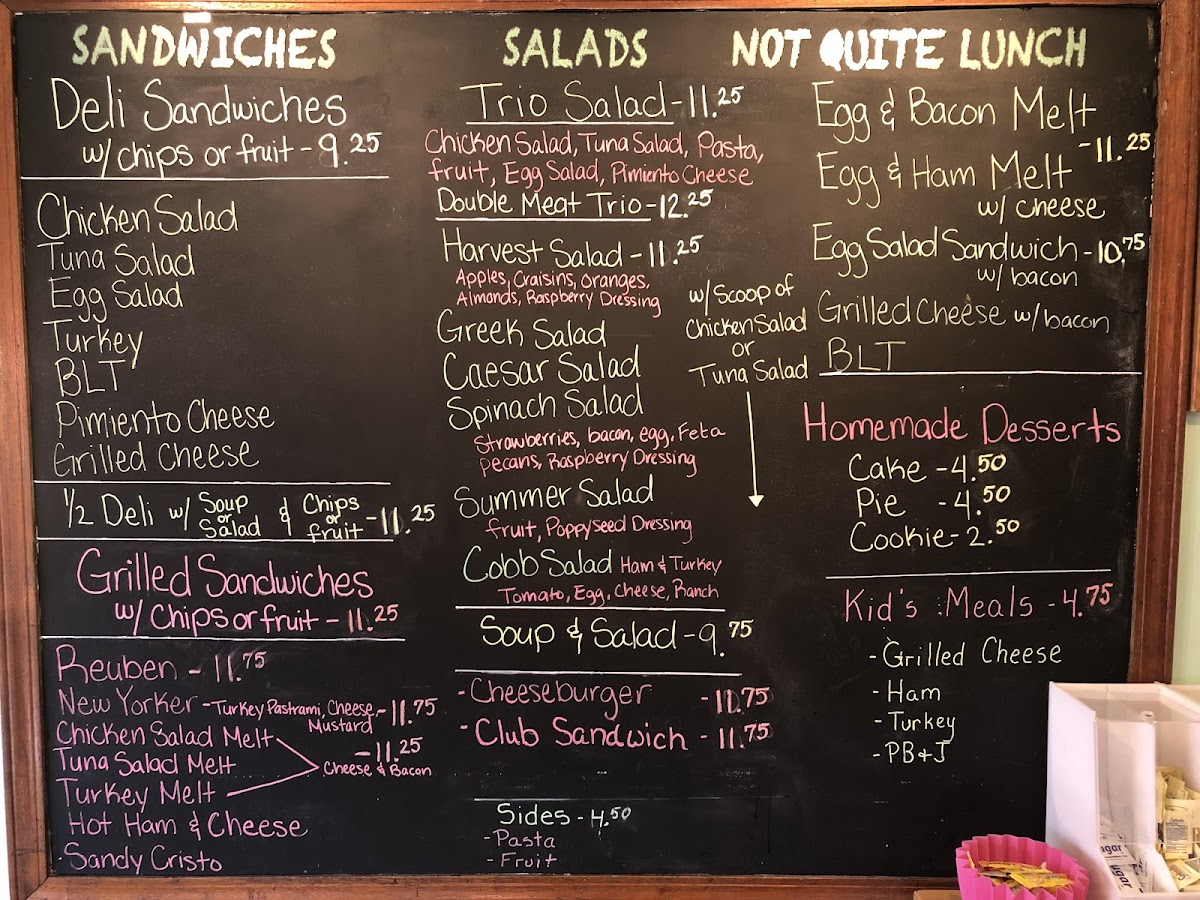 SANDWICHES
Deli Sandwiches
w/ chips or fruit - 9.25
Chicken Salad
Tuna Salad
Egg Salad
Turkey
BLT
Pimiento Cheese
Grilled Cheese
1/2 Deli w/ Soup or Salad & Chips or fruit - 11.25
Grilled Sandwiches
w/ Chips or fruit - 11.25
Reuben - 11.75
New Yorker - Turkey Pastrami, Cheese, - 11.75
Mustard
Chicken Salad Melt
- 11.25
Tuna Salad Melt
Cheese & Bacon
Turkey Melt
Hot Ham & Cheese
Sandy Cristo
SALADS
Trio Salad - 11.25
Chicken Salad, Tuna Salad, Pasta,
fruit, Egg Salad, Pimiento Cheese
Double Meat Trio - 12.25
Harvest Salad - 11.25
Apples, Craisins, oranges,
Almonds, Raspberry Dressing
Greek Salad
Caesar Salad
Spinach Salad
Strawberries, bacon, egg, Feta
pecans, Raspberry Dressing
Summer Salad
fruit, Poppyseed Dressing
Cobb Salad Ham & Turkey
Tomato, Egg, Cheese, Ranch
w/ Scoop of
Chicken Salad
or
Tuna Salad
Soup & Salad - 9.75
- Cheeseburger - 11.75
- Club Sandwich - 11.75
Sides - 4.50
- Pasta
- Fruit
NOT QUITE LUNCH
Egg & Bacon Melt
- 11.25
Egg & Ham Melt
w/ cheese
Egg Salad Sandwich - 10.75
w/ bacon
Grilled Cheese w/ bacon
BLT
Homemade Desserts
Cake - 4.50
Pie - 4.50
Cookie - 2.50
Kid's Meals - 4.75
- Grilled Cheese
- Ham
- Turkey
- PB & J